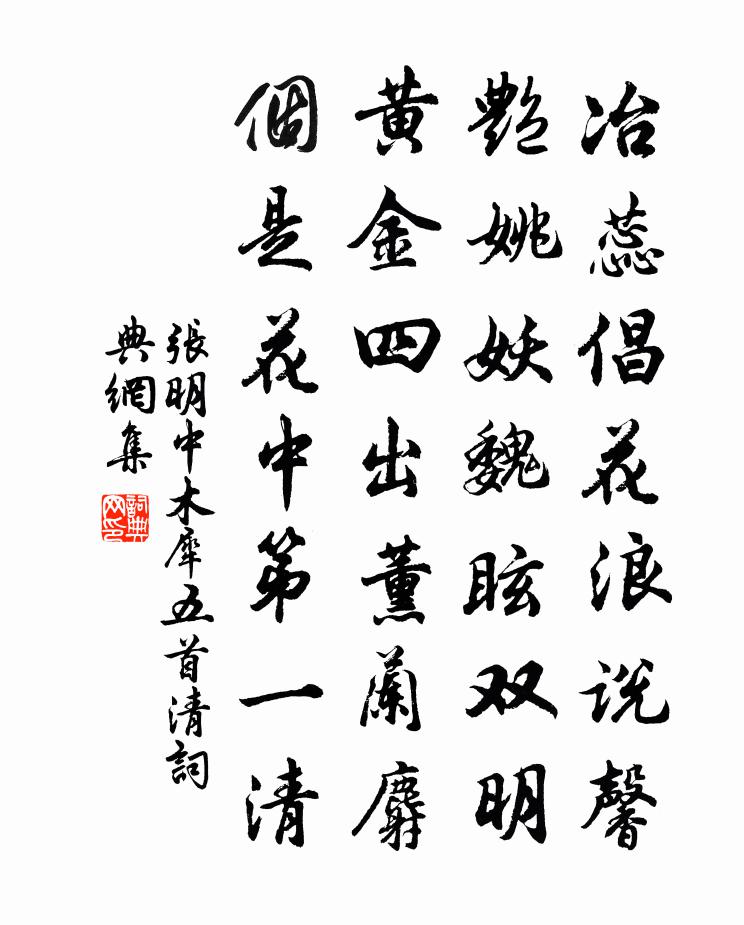 冶蕊倡花浪説馨
艷姚妖魏眩双明
黄金四出薰蘭麝
個是花中第一清
張明中木犀五首清詞
典網集
詞典网印